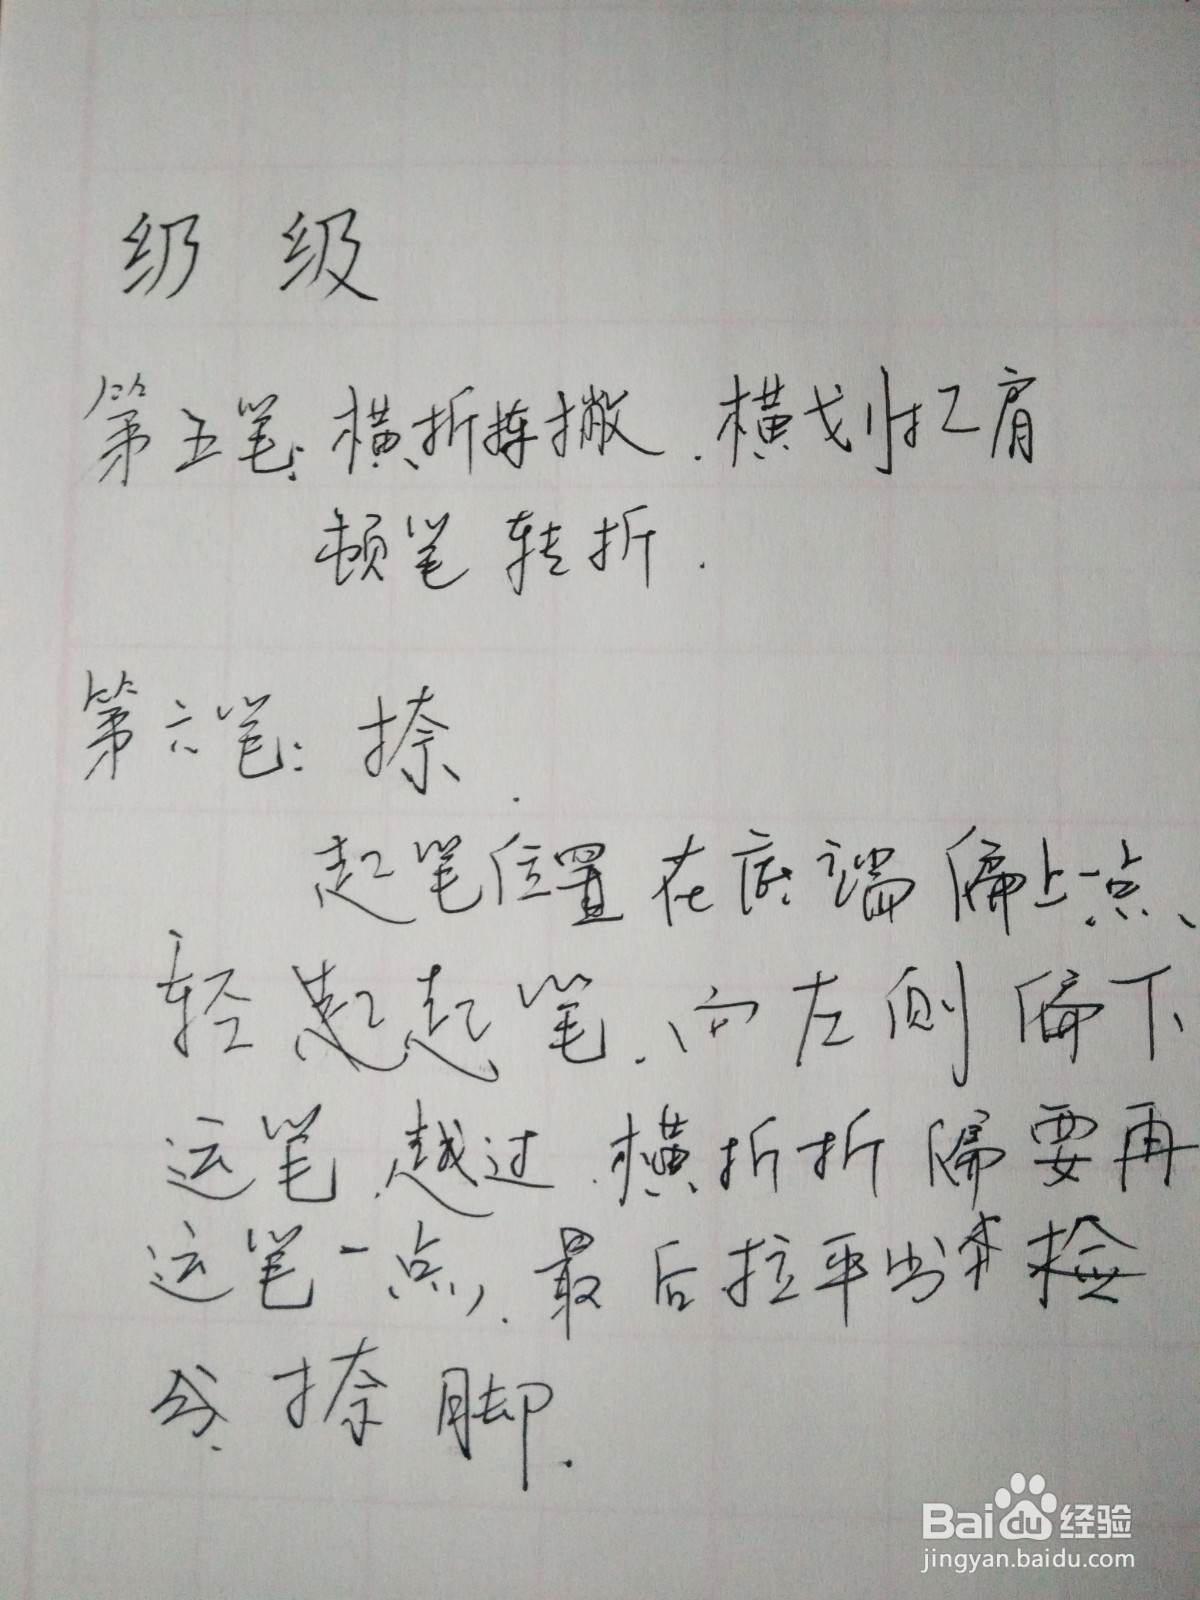 纫 级
第五笔:横折折撇.横划扛肩
顿笔转折.
第六笔:捺.
起笔位置在底端偏上一点、
轻起起笔.向左侧偏下
运笔.越过.横折折隔要再
运笔一点,.最后拉平出
捺脚.
Baidu经验
jingyan.baidu.com